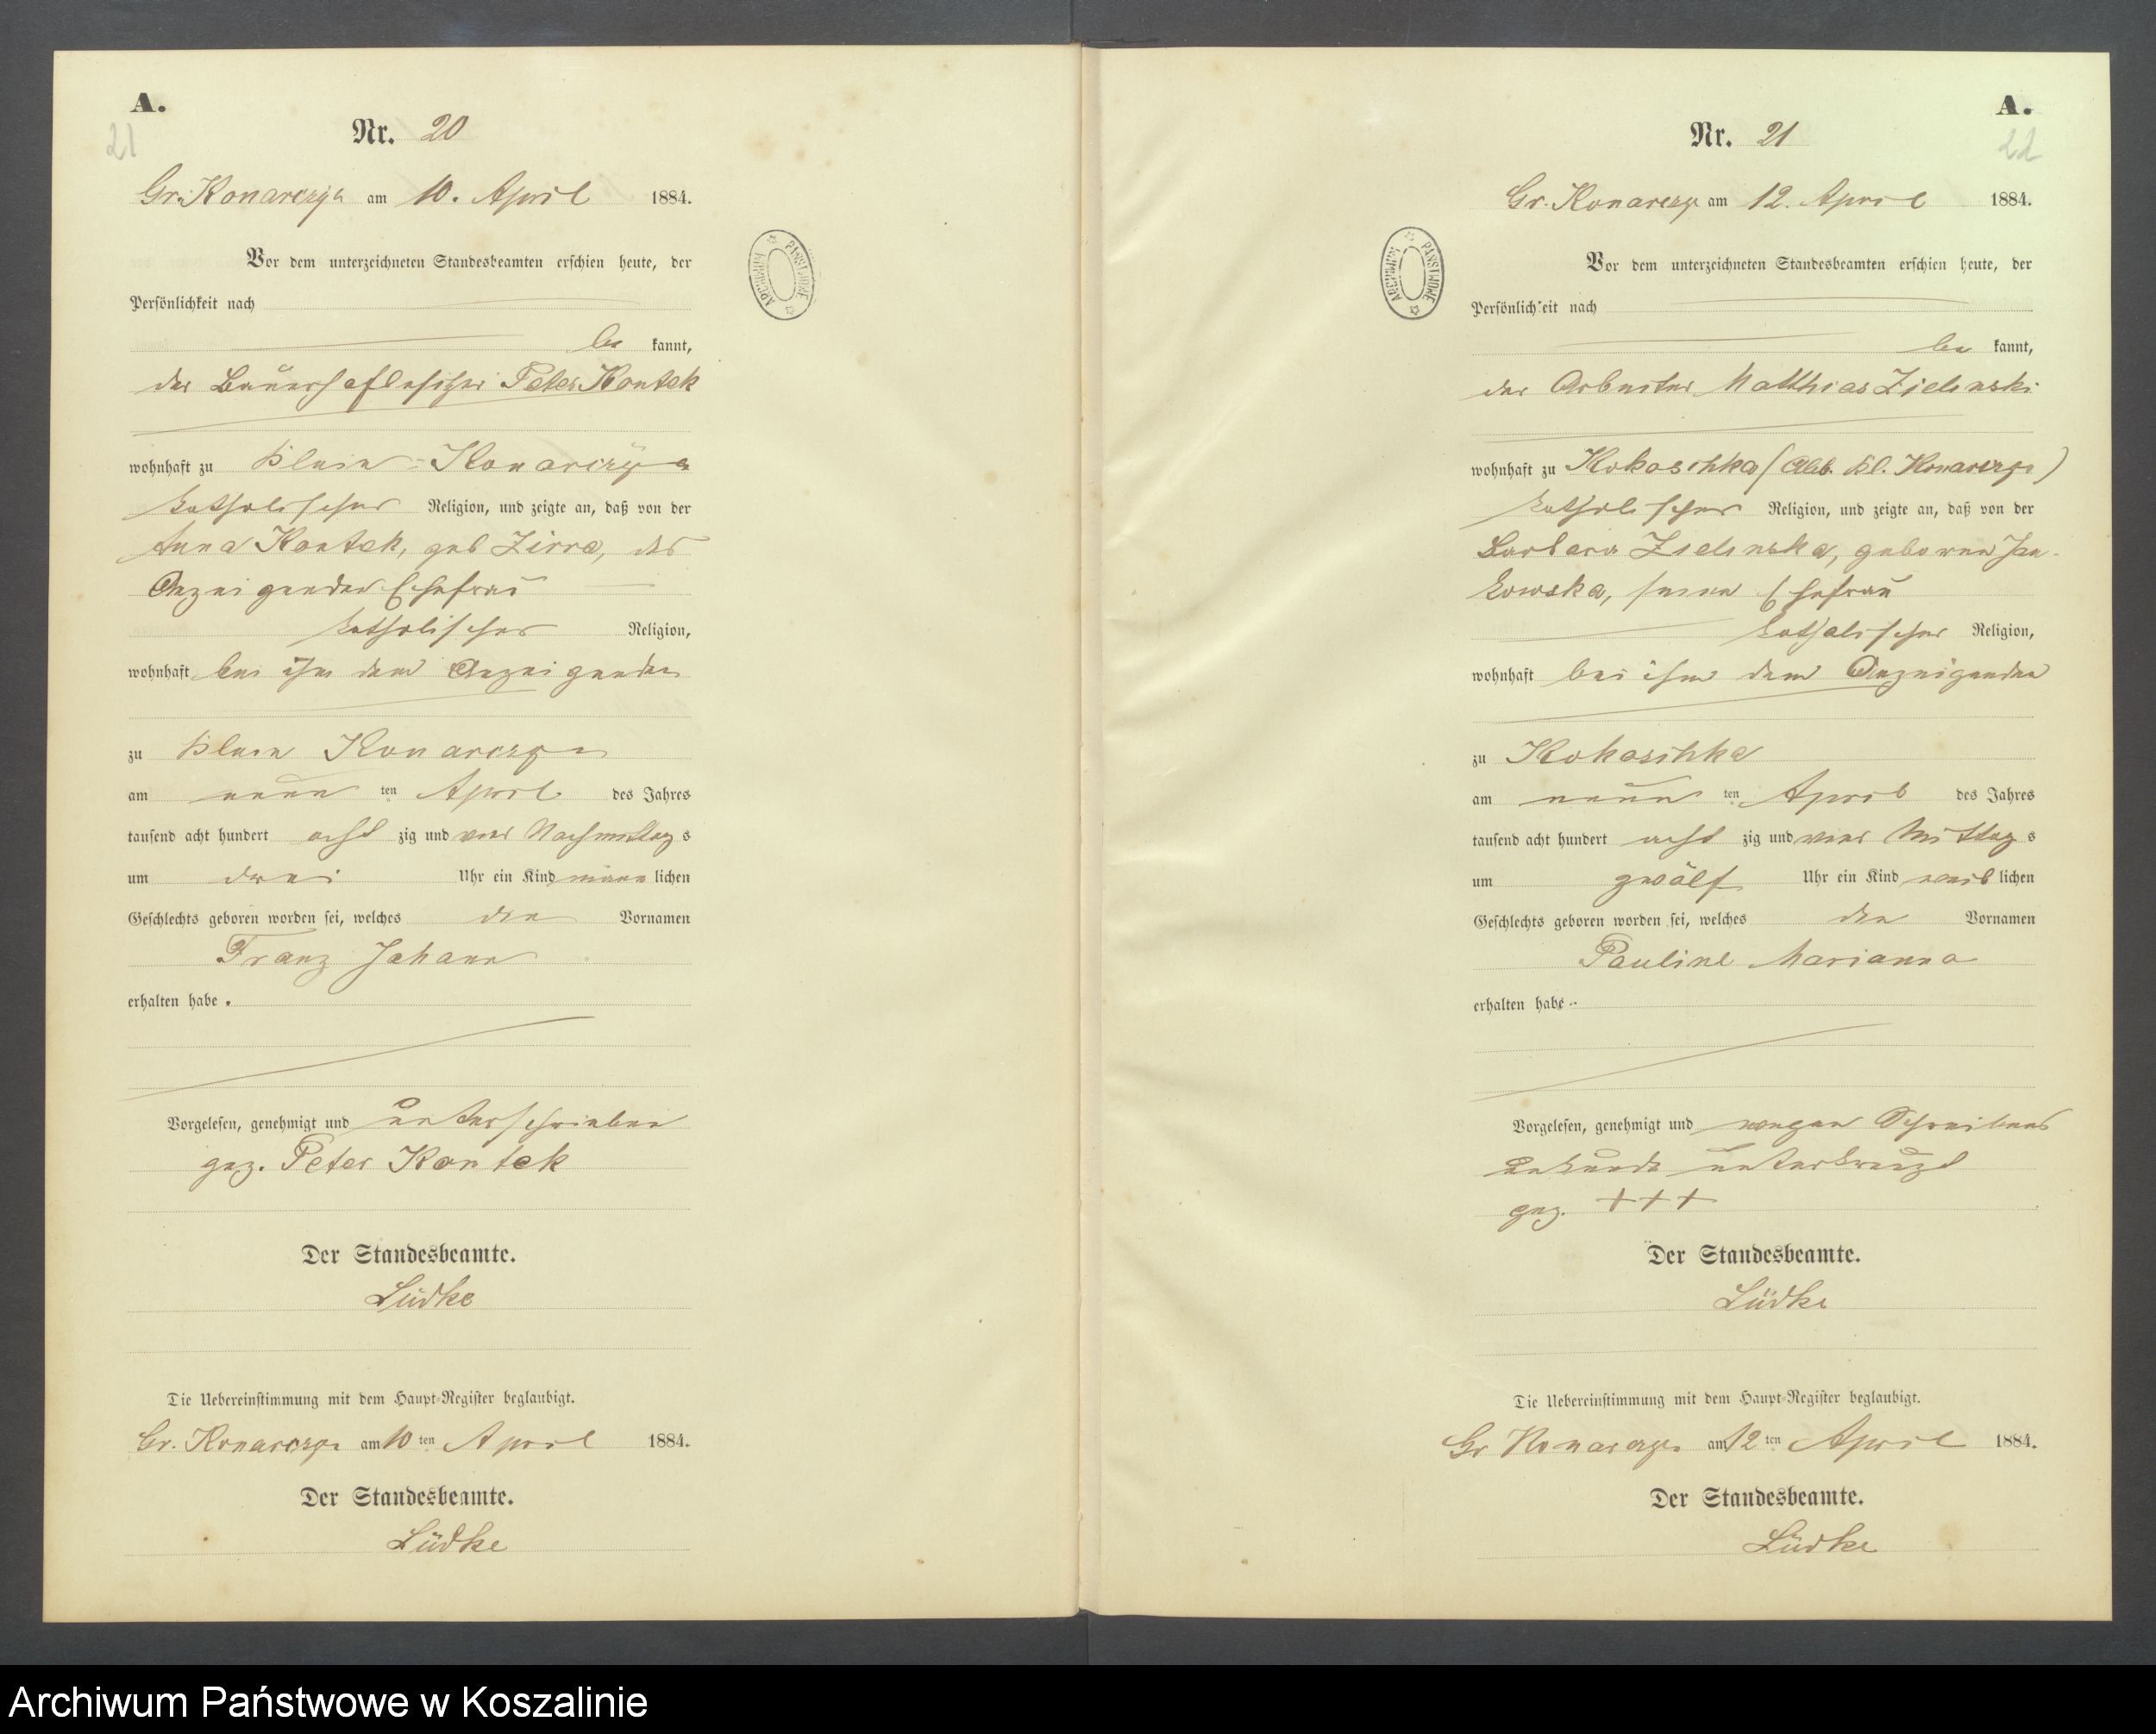 A.
21
Nr. 20
Gr. Konarczyn am 10. April 1884.
Vor dem unterzeichneten Standesbeamten erschien heute, der
Persönlichkeit nach
be kannt,
der Bauerhofbesitzer Peter Kontek
wohnhaft zu Klein-Konarczyn
katholischer Religion, und zeigte an, daß von der
Anna Kontek, geb Zirra, des
Anzeigenden Ehefrau
katholischer Religion,
wohnhaft bei ihm dem Anzeigenden
zu Klein Konarczyn
am neun ten April des Jahres
tausend acht hundert acht zig und vier Nachmittag s
um drei Uhr ein Kind männ lichen
Geschlechts geboren worden sei, welches den Vornamen
Franz Johann
erhalten habe.
Vorgelesen, genehmigt und unterschrieben
gez. Peter Kontek
Der Standesbeamte.
Lüdke
Die Uebereinstimmung mit dem Haupt-Register beglaubigt.
Gr. Konarczyn am 10 ten April 1884.
Der Standesbeamte.
Lüdke
ARCHIWUM PAŃSTWOWE
A.
22
Nr. 21
Gr. Konarczyn am 12. April 1884.
Vor dem unterzeichneten Standesbeamten erschien heute, der
Persönlichkeit nach
be kannt,
der Arbeiter Matthias Zielinski
wohnhaft zu Kokoschka (Abb. Kl. Konarczyn)
katholischer Religion, und zeigte an, daß von der
Barbara Zielinska, geborene Jan-
kowska, seine Ehefrau
katholischer Religion,
wohnhaft bei ihm dem Anzeigenden
zu Kokoschka
am neun ten April des Jahres
tausend acht hundert acht zig und vier Mittag s
um zwölf Uhr ein Kind weib lichen
Geschlechts geboren worden sei, welches den Vornamen
Pauline Marianna
erhalten habe.
Vorgelesen, genehmigt und wegen Schreibens
unkunde unterkreuzt
gez. +++
Der Standesbeamte.
Lüdke
Die Uebereinstimmung mit dem Haupt-Register beglaubigt.
Gr Konarczyn am 12 ten April 1884.
Der Standesbeamte.
Lüdke
ARCHIWUM PAŃSTWOWE
Archiwum Państwowe w Koszalinie